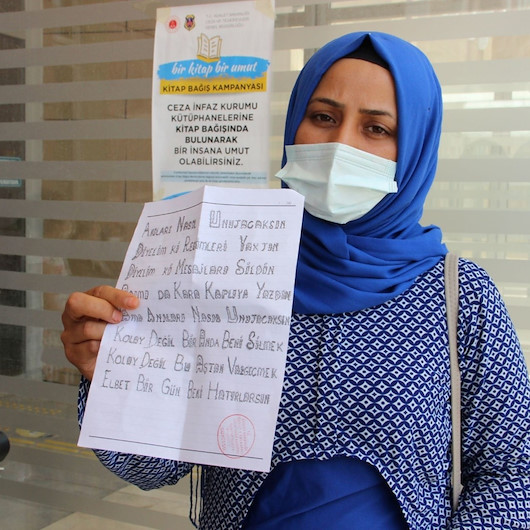 bir kitap bir umut
KİTAP BAĞIŞ KAMPANYASI
CEZA İNFAZ KURUMU
KÜTÜPHANELERİNE
KİTAP BAĞIŞINDA
BULUNARAK
BİR İNSANA UMUT
OLABİLİRSİNİZ.
ANILARI NASIL UNUTACAKSIN
DİYELİM Kİ RESİMLERİ YAKTIN
DİYELİM Kİ MESAJLARI SİLDİN
DA KARA KAPLIYA YAZDIN
AMA ANILARI NASIL UNUTACAKSIN
KOLAY DEĞİL BİR ANDA BENİ SİLMEK
KOLAY DEĞİL BU AŞTAN VAZGEÇMEK
ELBET BİR GÜN BENİ HATIRLARSIN